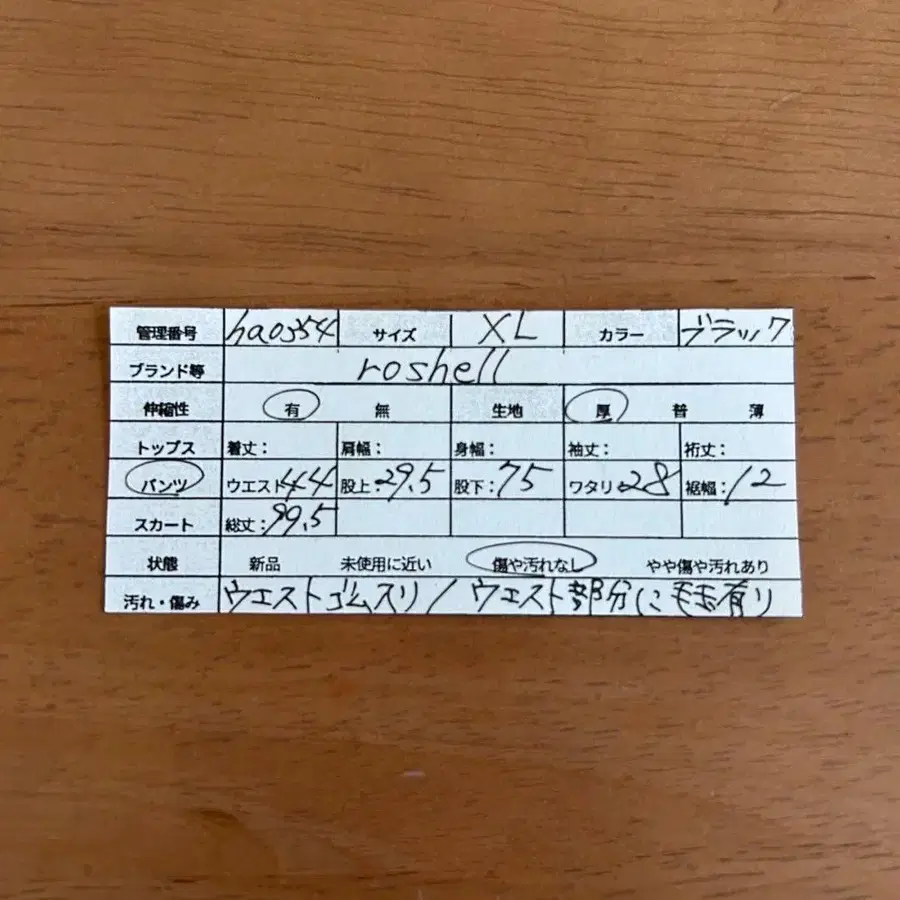 管理番号 ha0354 サイズ XL カラー ブラック
ブランド等 roshell
伸縮性 有 無 生地 厚 普 薄
トップス 着丈: 肩幅: 身幅: 袖丈: 裄丈:
パンツ ウエスト44 股上:29.5 股下:75 ワタリ:28 裾幅:12
スカート 総丈:99.5
状態 新品 未使用に近い 傷や汚れなし やや傷や汚れあり
汚れ・傷み ウエストゴムスリ/ウエスト部分に毛玉有り